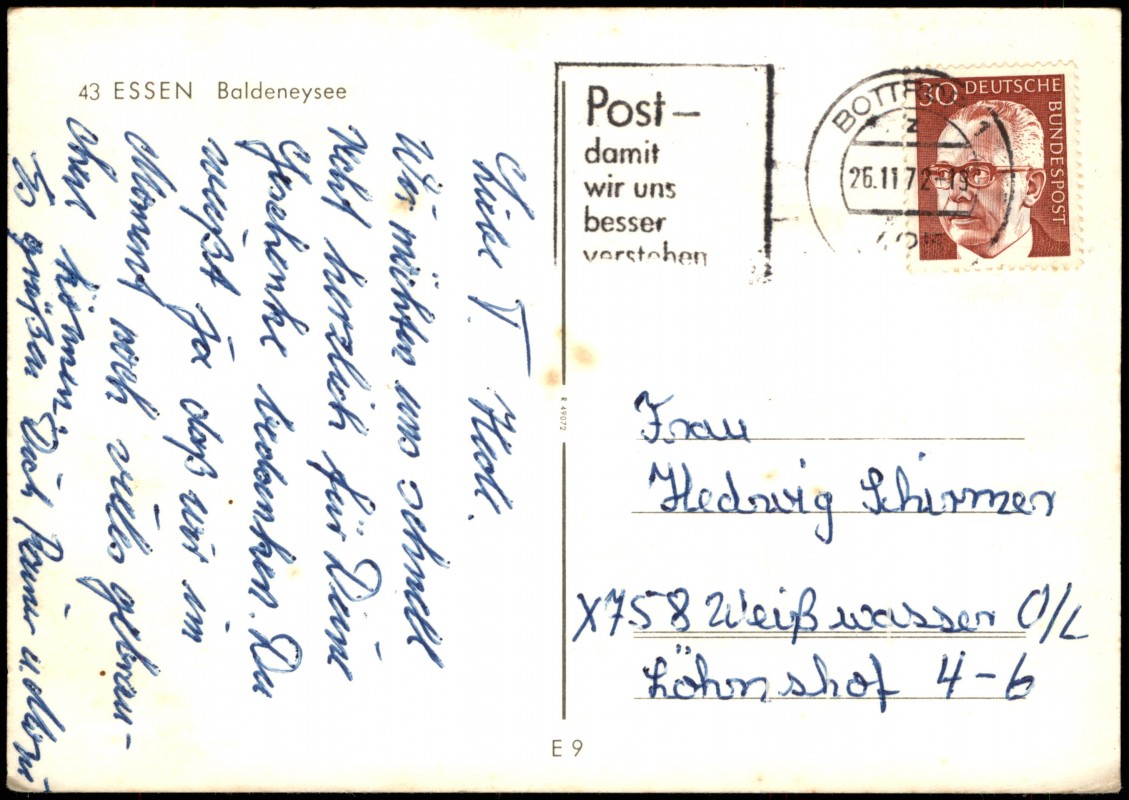 43 ESSEN Baldeneysee
Post –
damit
wir uns
besser
verstehen
BOTTROP
26.11.72-19
30 DEUTSCHE
BUNDESPOST
Liebe T. Hedl.
Wir möchten uns schnell
Recht herzlich für Deine
Geschenke bedanken. Du
weißt ja daß wir im
Moment noch vieles gebrau-
chen können.
Es grüßen Dich Rainer u.
R 49072
Frau
Hedwig Schirmer
X758 Weißwasser O/L
Löhnshof 4-6
E 9